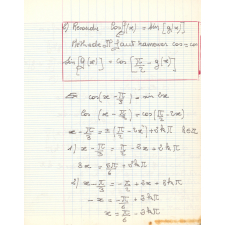 2) Résoudre cos[f(x)] = sin[g(x)]
Méthode : il faut ramener cos = cos
sin[g(x)] = cos[π/2 - g(x)]
Ex cos(x - π/3) = sin 2x
cos(x - π/3) = cos(π/2 - 2x)
x - π/3 = ± (π/2 - 2x) + 2kπ
1) x - π/3 = π/2 - 2x + 2kπ
3x = 5π/6 + 2kπ
2) x - π/3 = -π/2 + 2x + 2kπ
-x = -π/6 + 2kπ
x = π/6 - 2kπ